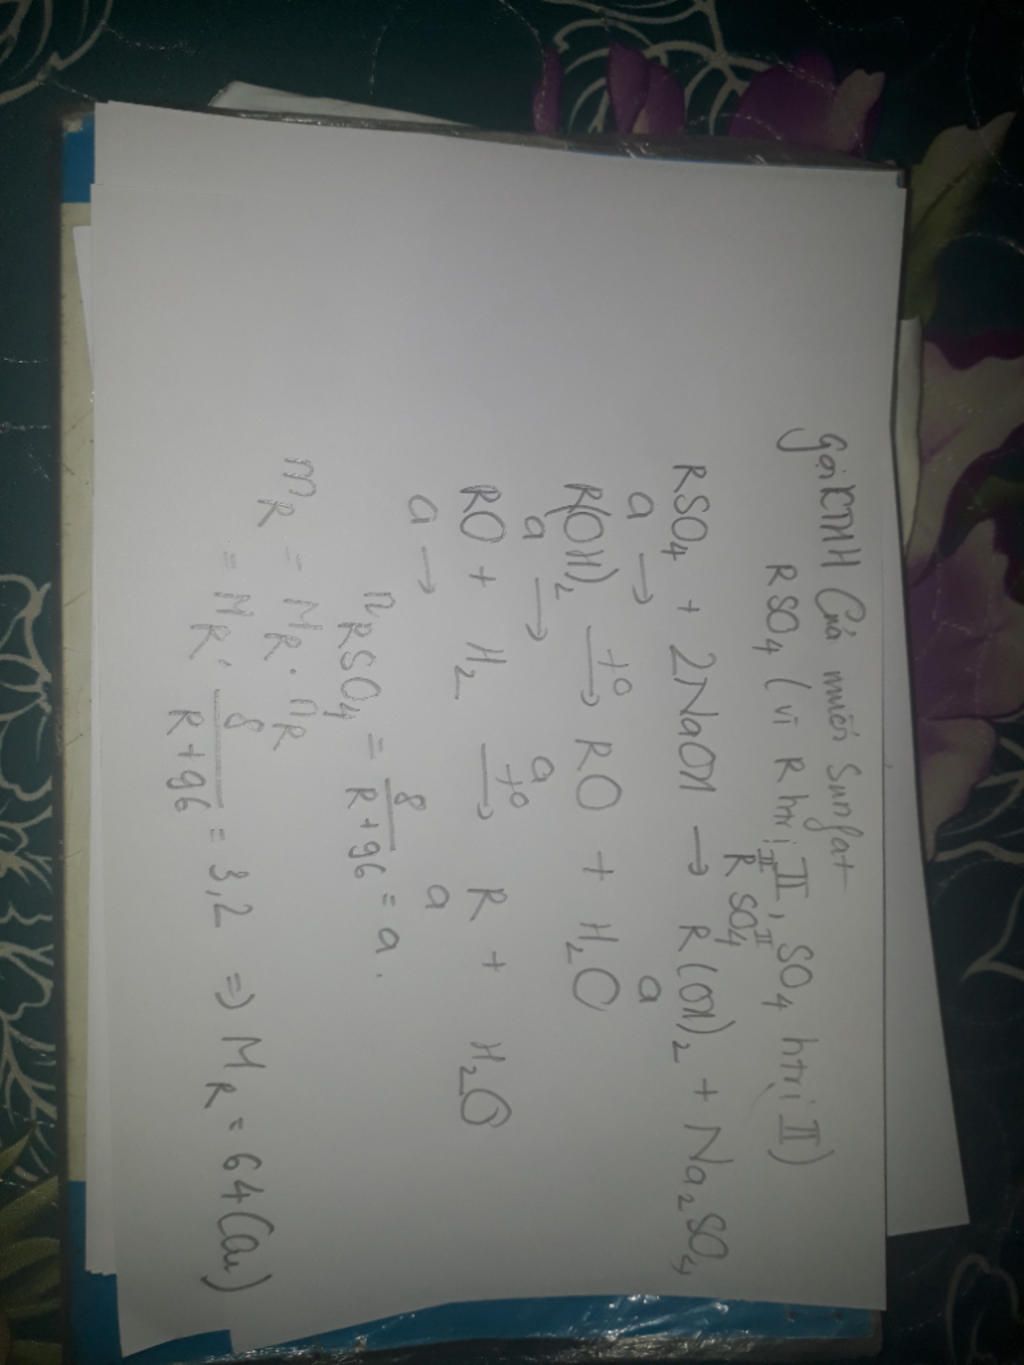 Gọi CTHH Của muối Sunfat
RSO4 (vì R htrị II, SO4 htrị II)
R^II SO4^II
RSO4 + 2NaOH → R(OH)2 + Na2SO4
a → a
R(OH)2 —t°→ RO + H2O
a → a
RO + H2 —t°→ R + H2O
a → a
nRSO4 = 8/(R+96) = a.
mR = MR . nR
= MR . 8/(R+96) = 3,2 => MR = 64 (Cu)